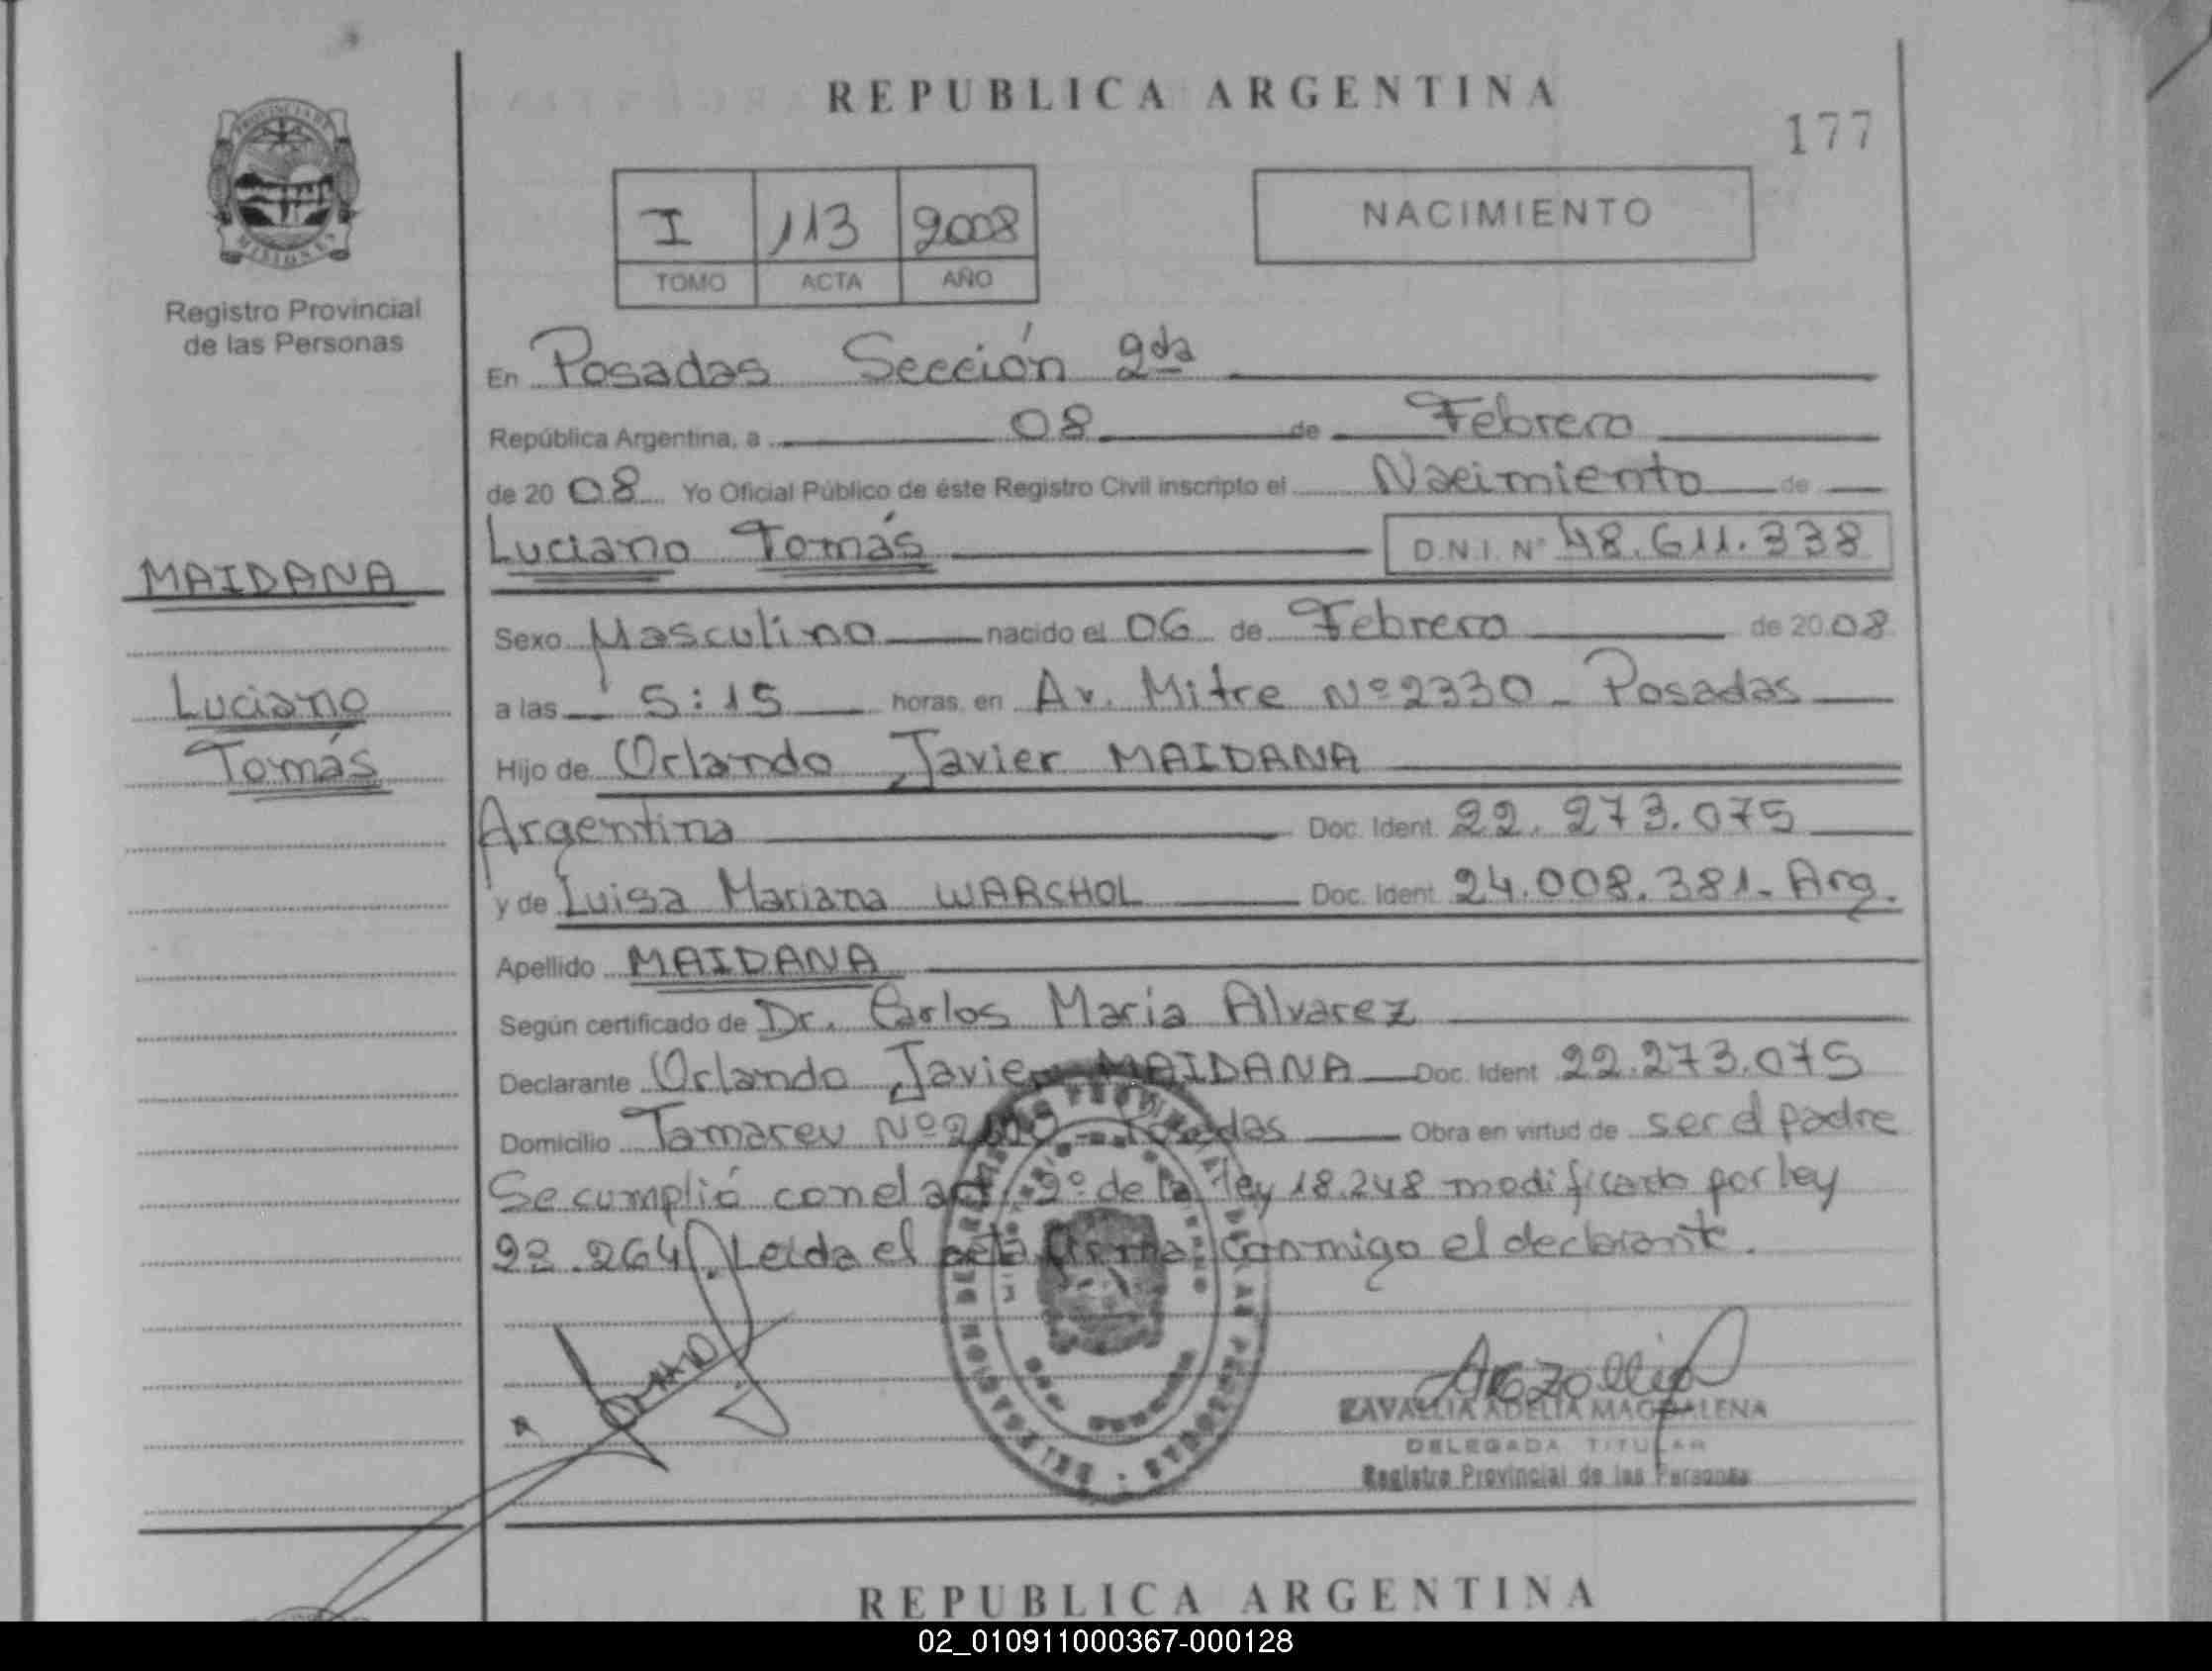 REPUBLICA ARGENTINA
177
I 113 2008
TOMO ACTA AÑO
NACIMIENTO
PROVINCIA DE
MISIONES
Registro Provincial
de las Personas
MAIDANA
Luciano
Tomás
En Posadas Sección 2da
República Argentina, a 08 de Febrero
de 20 08 Yo Oficial Público de éste Registro Civil inscripto el Nacimiento de
Luciano Tomás D.N.I. Nº 48.611.338
Sexo Masculino nacido el 06 de Febrero de 2008
a las 5:15 horas, en Av. Mitre Nº 2330 - Posadas
Hijo de Orlando Javier MAIDANA
Argentina Doc. Ident. 22.273.075
y de Luisa Mariana WARCHOL Doc. Ident. 24.008.381- Arg.
Apellido MAIDANA
Según certificado de Dr. Carlos Maria Alvarez
Declarante Orlando Javier MAIDANA Doc. Ident 22.273.075
Domicilio Nº Posadas Obra en virtud de ser el padre
Se cumplió con el art. 2º de la ley 18.248 modificado por ley
23.264. Leida el acta firma conmigo el declarante.
ZAVALLIA ADELIA MAGDALENA
DELEGADA TITULAR
Registro Provincial de las Personas
REPUBLICA ARGENTINA
02_010911000367-000128